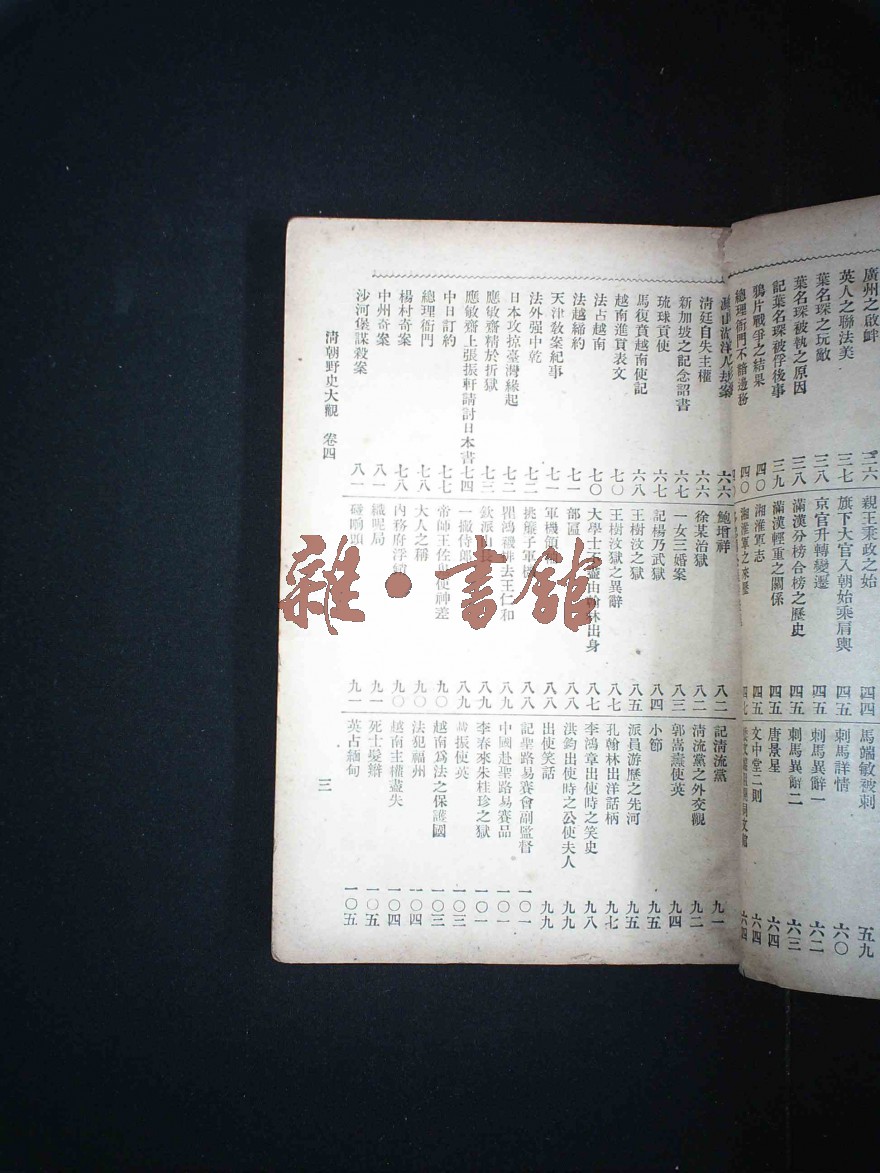 廣州之啟衅 三六
英人之聯法美 三七
葉名琛之玩敵 三八
葉名琛被執之原因 三八
記葉名琛被俘後事 三九
鴉片戰爭之結果 四〇
總理衙門不諳邊務 四〇
親王秉政之始 四四
旗下大官入朝始乘肩輿 四四
京官升轉變遷 四五
滿漢分榜合榜之歷史 四五
滿漢輕重之關係 四五
湘淮軍志 四五
湘淮軍之 四七
馬端敏被刺 五九
刺馬詳情 六〇
刺馬異辭一 六二
刺馬異辭二 六三
唐景星 六四
文中堂二則 六四
六四
洋人刦案 六六
清廷自失主權 六六
新加坡之記念詔書 六七
琉球貢使 六七
馬復賁越南使記 六八
越南進貢表文 七〇
法占越南 七〇
法越締約 七一
天津教案紀事 七一
法外强中乾 七二
日本攻掠臺灣緣起 七二
應敏齋精於折獄 七三
應敏齋上張振軒請討日本書 七四
中日訂約 七七
總理衙門 七八
楊村奇案 七八
中州奇案 八一
沙河堡謀殺案 八一
鮑增祥 八二
徐某治獄 八二
一女三婚案 八三
記楊乃武獄 八四
王樹汶之獄 八五
王樹汶獄之異辭 八七
大學士不盡由翰林出身 八七
部區 八八
軍機領 八八
挑簾子軍機 八八
瞿鴻禨排去王仁和 八九
欽派山長 八九
一撤侍郎 八九
帝師王佐鬼使神差 九〇
大人之稱 九〇
內務府浮 九〇
織呢局 九一
碰响頭 九一
記清流黨 九一
清流黨之外交觀 九二
郭嵩燾使英 九四
小節 九五
派員游歷之先河 九五
孔翰林出洋話柄 九七
李鴻章出使時之笑史 九八
洪鈞出使時之公使夫人 九九
出使笑話 九九
記聖路易賽會副監督 一〇一
中國赴聖路易賽品 一〇一
李春來朱桂珍之獄 一〇一
載振使英 一〇三
越南爲法之保護國 一〇三
法犯福州 一〇四
越南主權盡失 一〇四
死士髮辮 一〇五
英占緬甸 一〇五
清朝野史大觀 卷四
三
雜·書館